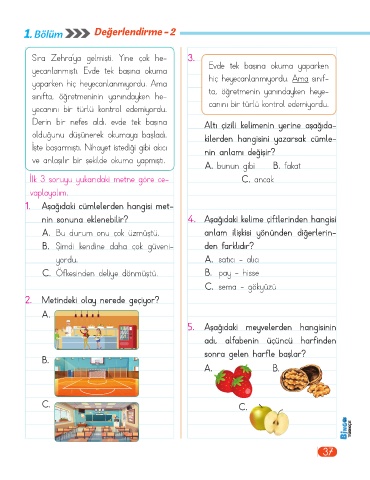 1. Bölüm
Değerlendirme - 2
Sıra Zehra'ya gelmişti. Yine çok he-
yecanlanmıştı. Evde tek başına okuma
yaparken hiç heyecanlanmıyordu. Ama
sınıfta, öğretmeninin yanındayken he-
yecanını bir türlü kontrol edemiyordu.
Derin bir nefes aldı, evde tek başına
olduğunu düşünerek okumaya başladı.
İşte başarmıştı. Nihayet istediği gibi akıcı
ve anlaşılır bir şekilde okuma yapmıştı.
İlk 3 soruyu yukarıdaki metne göre ce-
vaplayalım.
1. Aşağıdaki cümlelerden hangisi met-
nin sonuna eklenebilir?
A. Bu durum onu çok üzmüştü.
B. Şimdi kendine daha çok güveni-
yordu.
C. Öfkesinden deliye dönmüştü.
2. Metindeki olay nerede geçiyor?
A.
B.
C.
3.
Evde tek başına okuma yaparken
hiç heyecanlanmıyordu. Ama sınıf-
ta, öğretmenin yanındayken heye-
canını bir türlü kontrol edemiyordu.
Altı çizili kelimenin yerine aşağıda-
kilerden hangisini yazarsak cümle-
nin anlamı değişir?
A. bunun gibi B. fakat
C. ancak
4. Aşağıdaki kelime çiftlerinden hangisi
anlam ilişkisi yönünden diğerlerin-
den farklıdır?
A. satıcı - alıcı
B. pay - hisse
C. sema - gökyüzü
5. Aşağıdaki meyvelerden hangisinin
adı, alfabenin üçüncü harfinden
sonra gelen harfle başlar?
A. B.
C.
BİNGO
TÜRKÇE
37